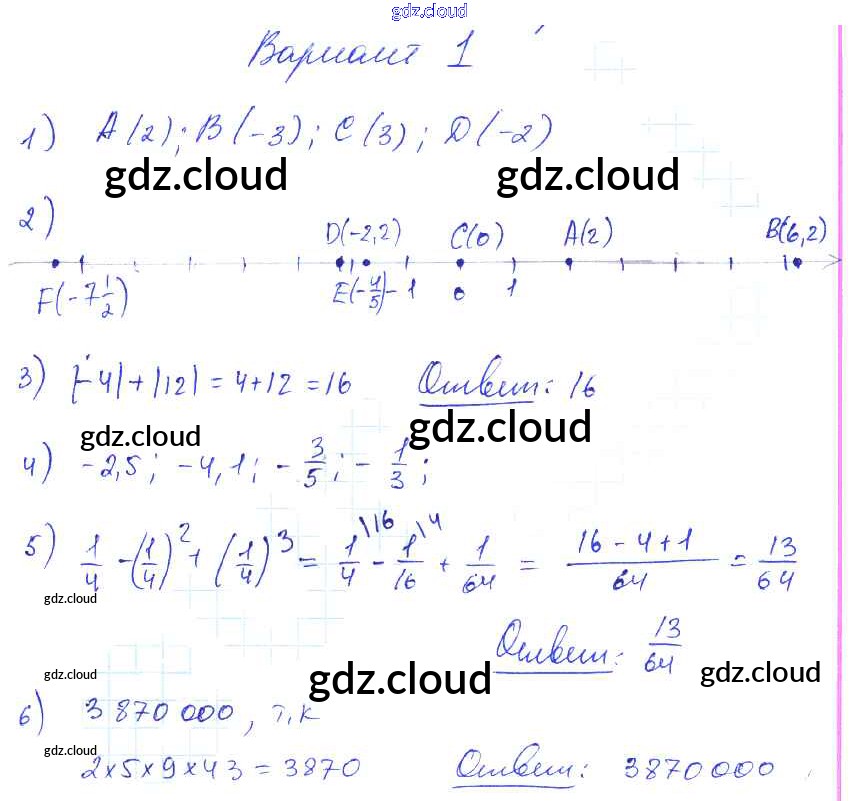 gdz.cloud
Вариант 1
1) A(2); B(-3); C(3); D(-2)
gdz.cloud gdz.cloud
2)
D(-2,2) C(0) A(2) B(6,2)
F(-7 1/2) E(-4/5) -1 0 1
3) |-4|+|12| = 4+12 = 16 Ответ: 16
gdz.cloud gdz.cloud
4) -2,5; -4,1; -3/5; -1/3;
5) 1/4 - (1/4)^2 + (1/4)^3 = 1/4 \16 - 1/16 \4 + 1/64 = (16-4+1)/64 = 13/64
gdz.cloud
Ответ: 13/64
gdz.cloud gdz.cloud gdz.cloud
6) 3 870 000, т,к
gdz.cloud
2×5×9×43 = 3870 Ответ: 3870000